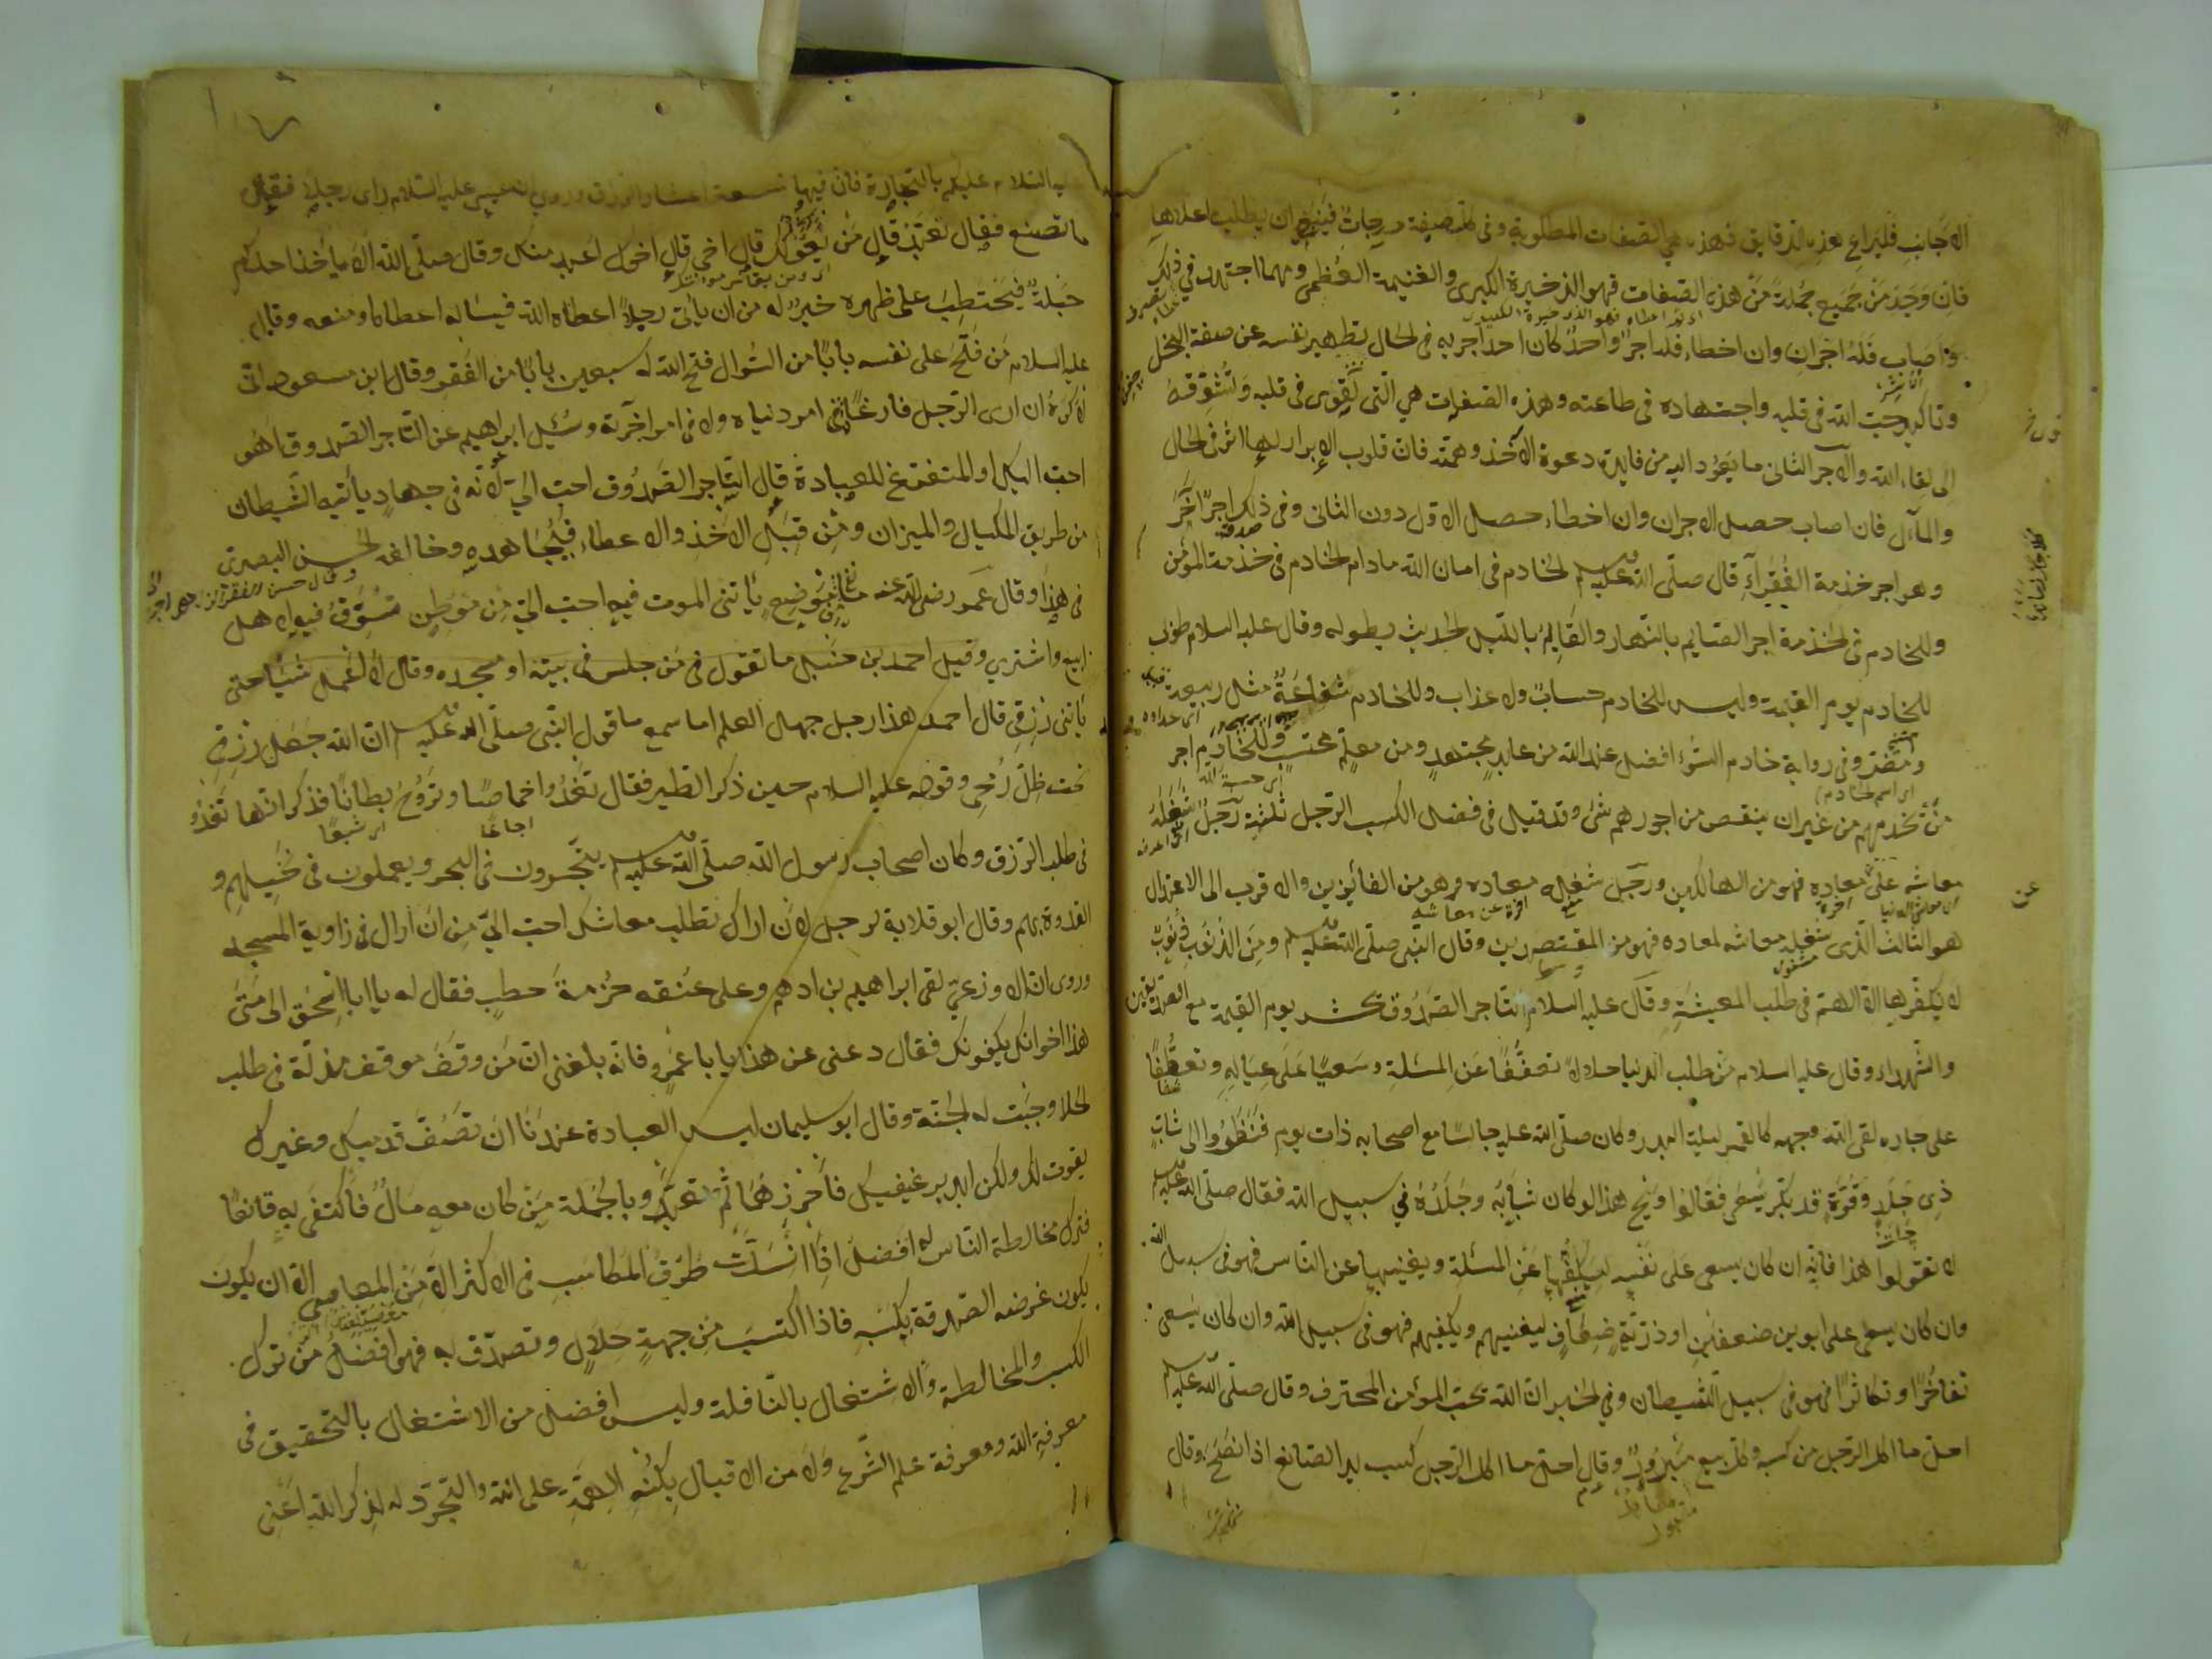 الاجانب فليراع هذه الدقايق فهذه هي الصفات المطلوبة وفى كل صفة درجات فينبغي ان يطلب اعلاها
فان وجد من جميع جملة من هذه الصفات فهو الذخيرة الكبرى والغنيمة العظمى ومهما اجتهد في ذلك
واصاب فله اجران وان اخطاء فله اجر واحد كان احد اجريه فى الحال تطهير نفسه عن صفة البخل
وتاكيد حب الله فى قلبه واجتهاده فى طاعته وهذه الصفات هي التى تقوى فى قلبه وتشوقه
الى لقاء الله والاجر الثانى ما يعود اليه من فايدة دعوة الآخذ وهمته فان قلوب الابرار لها اثر فى الحال
والمآل فان اصاب حصل الاجران وان اخطاء حصل الاول دون الثانى وفى ذلك اجر آخر
وهو اجر خدمة الفقراء قال صلى الله عليه وسلم الخادم فى امان الله مادام الخادم فى خدمة المؤمن
وللخادم فى الخدمة اجر الصايم بالنهار والقايم بالليل الحديث بطوله وقال عليه السلام طوبى
للخادم يوم القيمة وليس للخادم حساب ولا عذاب وللخادم شفاعة مثل ربيعة
ومضر وفى رواية خادم السوء افضل عند الله من عابد مجتهد ومن معلم محتسب وللخادم اجر
من يخدمهم من غير ان ينقص من اجورهم شئ وقد قيل فى فضل الكسب الرجل ثلثة رجل شغله
معاشه على معاده فهو من الهالكين ورجل شغله معاده فهو من الفائزين والاقرب الى الاعتدال
هو الثالث الذى شغله معاشه لمعاده فهو من المقتصدين وقال النبى صلى الله عليه وسلم ومن الذنوب ذنوب
لا يكفرها الا الهم فى طلب المعيشة وقال عليه السلام التاجر الصدوق يحشر يوم القيمة مع الصديقين
والشهداء وقال عليه السلام من طلب الدنيا حلالا تعففا عن المسئلة وسعيا على عياله وتعطفا
على جاره لقى الله وجهه كالقمر ليلة البدر وكان صلى الله عليه جالسا مع اصحابه ذات يوم فنظروا الى شاب
ذى جلد وقوة قد بكر يسعى فقالوا ويح هذا لو كان شبابه وجلده في سبيل الله فقال صلى الله عليه وسلم
لا تقولوا هذا فانه ان كان يسعى على نفسه ليكفها عن المسئلة ويغنيها عن الناس فهو فى سبيل الله
وان كان يسعى على ابوين ضعفين او ذرية ضعاف ليغنيهم ويكفيهم فهو فى سبيل الله وان كان يسعى
تفاخرا وتكاثرا فهو فى سبيل الشيطان وفي الخبر ان الله يحب المؤمن المحترف وقال صلى الله عليه وسلم
احل ما اكل الرجل من كسبه وكل بيع مبرور وقال احل ما اكل الرجل كسب يد الصانع اذا نصح وقال
السلام عليكم بالتجارة فان فيها تسعة اعشار الرزق وروى ان عيسى عليه السلام راى رجلا فقال
ما تصنع فقال تعبد قال من يعولك قال اخى قال اخوك اعبد منك وقال صلى الله لان ياخذ احدكم
حبلة فيحتطب على ظهره خير له من ان يأتى رجلا اعطاه الله فيساله اعطاه او منعه وقال
عليه السلام من فتح على نفسه بابا من السؤال فتح الله له سبعين بابا من الفقر وقال ابن مسعود انى
لاكره ان ارى الرجل فارغا لا فى امر دنياه ولا فى امر آخرته وسئل ابراهيم عن التاجر الصدوق اهو
احب اليك او المتفرغ للعبادة قال التاجر الصدوق احب الي لانه فى جهاد يأتيه الشيطان
من طريق المكيال والميزان ومن قبل الاخذ والاعطاء فيجاهده وخالفه الحسن البصرى
فى هذا وقال عمر رضى الله عنه ما موضع يأتنى الموت فيه احب الي من موطن تسوق فيه لاهل
ابيع واشترى وقيل احمد بن حنبل ما تقول فى من جلس فى بيته او مسجده وقال لا اعمل شيئا حتى
يأتنى رزقى قال احمد هذا رجل جهل العلم اما سمع ما قول النبى صلى الله عليه وسلم ان الله جعل رزقى
تحت ظل رمحى وقوله عليه السلام حين ذكر الطير فقال تغدوا خماصا وتروح بطانا فذكر انها تغدو
فى طلب الرزق وكان اصحاب رسول الله صلى الله عليه وسلم يتجرون فى البحر ويعملون فى نخيلهم و
القدوة بهم وقال ابو قلابة لرجل لان اراك تطلب معاشك احب الي من ان اراك فى زاوية المسجد
وروى ان الاوزعي لقى ابراهيم بن ادهم وعلى عنقه حزمة حطب فقال له يا ابا اسحق الى متى
هذا اخوانك يكفونك فقال دعنى عن هذا يا با عمرو فانه بلغنى ان من وقف موقف مذلة فى طلب
الحلا وجبت له الجنة وقال ابو سليمان ليس العبادة عندنا ان تصف قدميك وغيرك
يقوت لك ولكن ابدء برغيفيك فاحرزهما ثم تعبد وبالجملة من كان معه مال فاكتفى به قانعا
فترك مخالطة الناس له افضل اذا انسدت طرق المكاسب فى الاكثر الا من المعاصى الا ان يكون
يكون غرضه الصدقة بكسبه فاذا اكتسب من جهة حلال وتصدق به فهو افضل من ترك
الكسب والمخالطة والاشتغال بالنافلة وليس افضل من الاشتغال بالتحقيق فى
معرفة الله ومعرفة علم الشرع ولا من الاقبال بكنه الهمة على الله والتجرد له لذكر الله اعنى